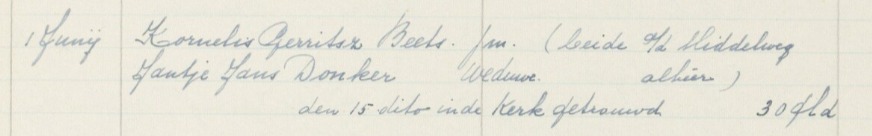 1 Junij Kornelis Gerritsz Beets. jm. (beide o/d Middelweg
Jantje Jans Donker Weduwe. alhier)
den 15 dito in de Kerk getrouwd 30 Gld